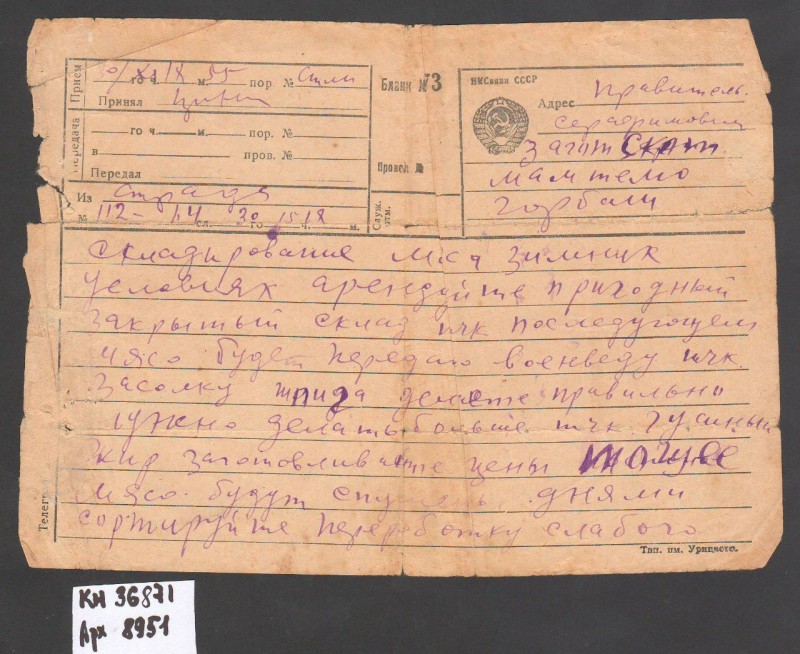 Прием
го ч. м. 05 пор. №
Принял
Передача
го ч. м. пор. №
в пров. №
Передал
Из
№ 112- 14 сл. 30 го 15 18 м.
Бланк № 73
Провод №
Служ. отм.
НКСвязи СССР
Адрес Правитель.
серафимович
Загот
мамтемо
горбали
складирование мяса зимних
условиях арендуйте приходный
закрытый склад тчк последующем
мясо будет передано военведу тчк
засолку делаете правильно
нужно делать больше тчк гусиный
жир заготовливайте цены
мясо будут днями
сортируйте переработку слабого
Телегр
Тип. им. Урицкого.
КП 36871
Арх 8951